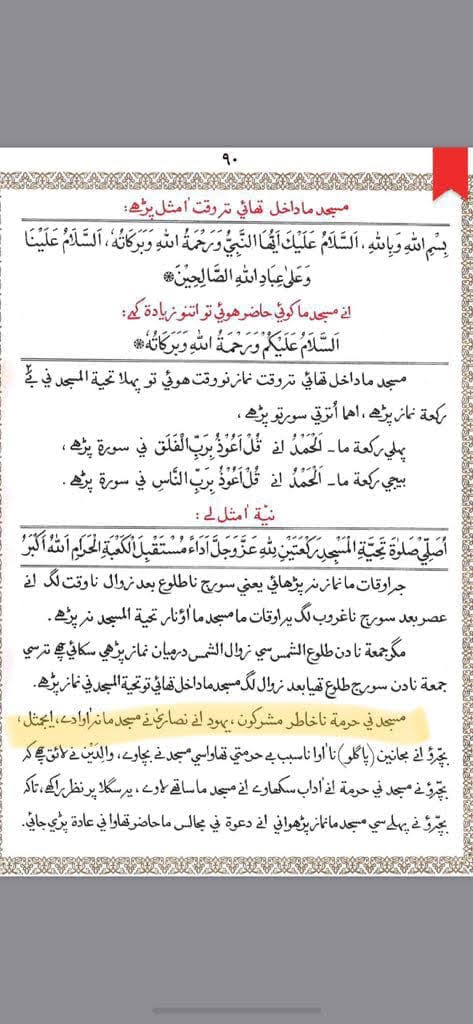 ٩٠
مسجد ما داخل تھائي تر وقت اْ مثل پڑھے:
بِسْمِ اللهِ وَبِاللهِ، اَلسَّلَامُ عَلَيْكَ اَيُّهَا النَّبِيُّ وَرَحْمَةُ اللهِ وَبَرَكَاتُهُ، اَلسَّلَامُ عَلَيْنَا
وَعَلٰى عِبَادِ اللهِ الصَّالِحِيْنَ*
انے مسجد ما كوئي حاضر هوئي تو اتنو زيادة كهے:
اَلسَّلَامُ عَلَيْكُمْ وَرَحْمَةُ اللهِ وَبَرَكَاتُهُ*
مسجد ما داخل تھائي تر وقت نماز نو وقت هوئي تو پهلا تحية المسجد ني بے
ركعة نماز پڑھے، اهما اُترتي سورتو پڑھے،
پهلي ركعة ما- اَلْحَمْدُ انے قُلْ اَعُوْذُ بِرَبِّ الْفَلَقِ ني سورة پڑھے.
بيجي ركعة ما- اَلْحَمْدُ انے قُلْ اَعُوْذُ بِرَبِّ النَّاسِ ني سورة پڑھے.
نيّة اْ مثل لے:
اُصَلِّيْ صَلٰوةَ تَحِيَّةِ الْمَسْجِدِ رَكْعَتَيْنِ لِلّٰهِ عَزَّ وَجَلَّ اَدَاءً مُسْتَقْبِلَ الْكَعْبَةِ الْحَرَامِ اَللهُ اَكْبَرُ
جر اوقات ما نماز نر پڑھائي يعني سورج نا طلوع بعد زوال نا وقت لگ انے
عصر بعد سورج نا غروب لگ ير اوقات ما مسجد ما اْؤنار تحية المسجد نر پڑھے.
مگر جمعة نا دن طلوع الشمس سي زوال الشمس درميان نماز پڑھي سكائي چھے ترسي
جمعة نا دن سورج طلوع تھيا بعد زوال لگ مسجد ما داخل تھائي تو تحية المسجد ني نماز پڑھے.
مسجد ني حرمة نا خاطر مشركون، يهود انے نصارىٰ نے مسجد ما نر اْوا دے، ايجمثل،
بچّرؤ انے مجانين (پاگلو) نا اْوا نا سبب بے حرمتي تھاوا سي مسجد نے بچاوے، والدَين نے لائق چھے كه
بچّرؤ نے مسجد ني حرمة انے اْداب سكھاوے انے مسجد ما ساتھے لاوے، ير سگلا پر نظر راكھے، تاكه
بچّرؤ نے پهلے سي مسجد ما نماز پڑھواني انے دعوة ني مجالس ما حاضر تھاوا ني عادة پڑي جائي.